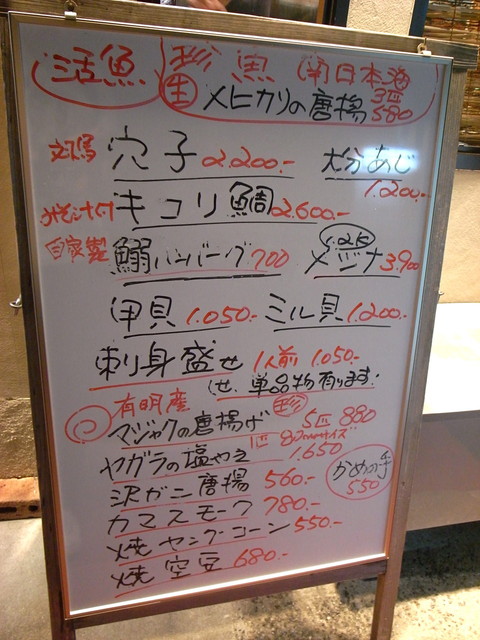 活魚 珍魚 (南)日本海
生 メヒカリの唐揚 3匹 580
対馬 穴子 2.200.- 大分あじ 1.200.-
キコリ鯛 2.600.-
自家製 鰯ハンバーグ 700 メジナ 3.900
甲貝 1.050.- ミル貝 1.200.-
刺身盛せ 1人前 1.050.-
単品物有ります.
有明産 珍
マジャクの唐揚げ 5匹 880
ヤガラの塩やき 1匹 80cmサイズ 1.650
沢ガニ唐揚 560.-
かめの手 550
カマスモーク 780.-
焼ヤングコーン 550.-
焼空豆 680.-